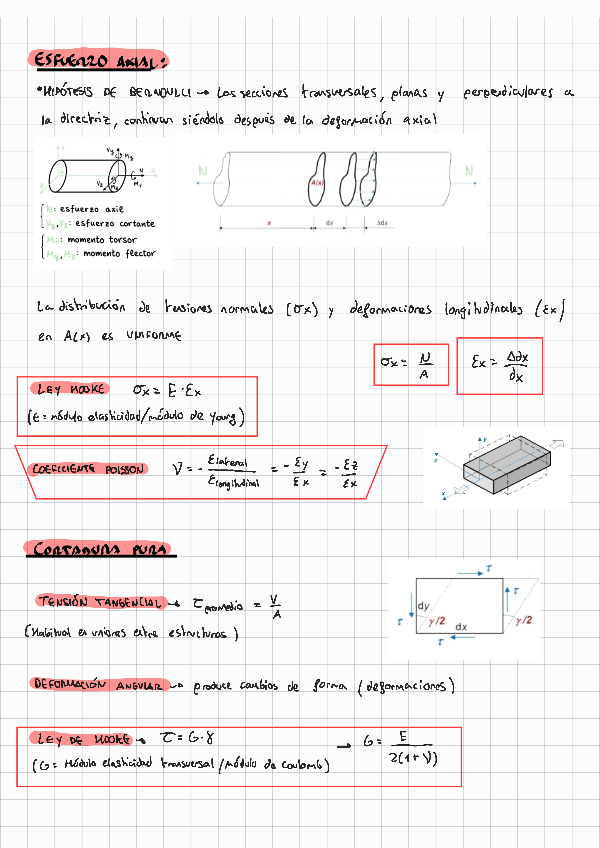 ESFUERZO AXIAL:
*HIPÓTESIS DE BERNOULLI → Las secciones transversales, planas y perpendiculares a
la directriz, continuan siéndolo después de la deformación axial
Vy My
Vz Mz N MT
N: esfuerzo axie
Vy, Vz: esfuerzo cortante
MT: momento torsor
My, Mz: momento flector
N A(x) N
x dx Δdx
La distribución de tensiones normales (σx) y deformaciones longitudinales (εx)
en A(x) es UNIFORME
σx = N/A εx = Δdx/dx
LEY HOOKE σx = E · εx
(E = módulo elasticidad/módulo de Young)
COEFICIENTE POISSON ν = - εlateral/εlongitudinal = - εy/εx = - εz/εx
y
z
x
CORTADURA PURA
TENSIÓN TANGENCIAL → τpromedio = V/A
(Habitual en uniones entre estructuras)
τ
dy τ
τ γ/2 dx γ/2
τ
DEFORMACIÓN ANGULAR → produce cambios de forma (deformaciones)
LEY DE HOOKE → τ = G·γ → G = E/2(1+ν)
(G = Módulo elasticidad transversal/módulo de coulomb)